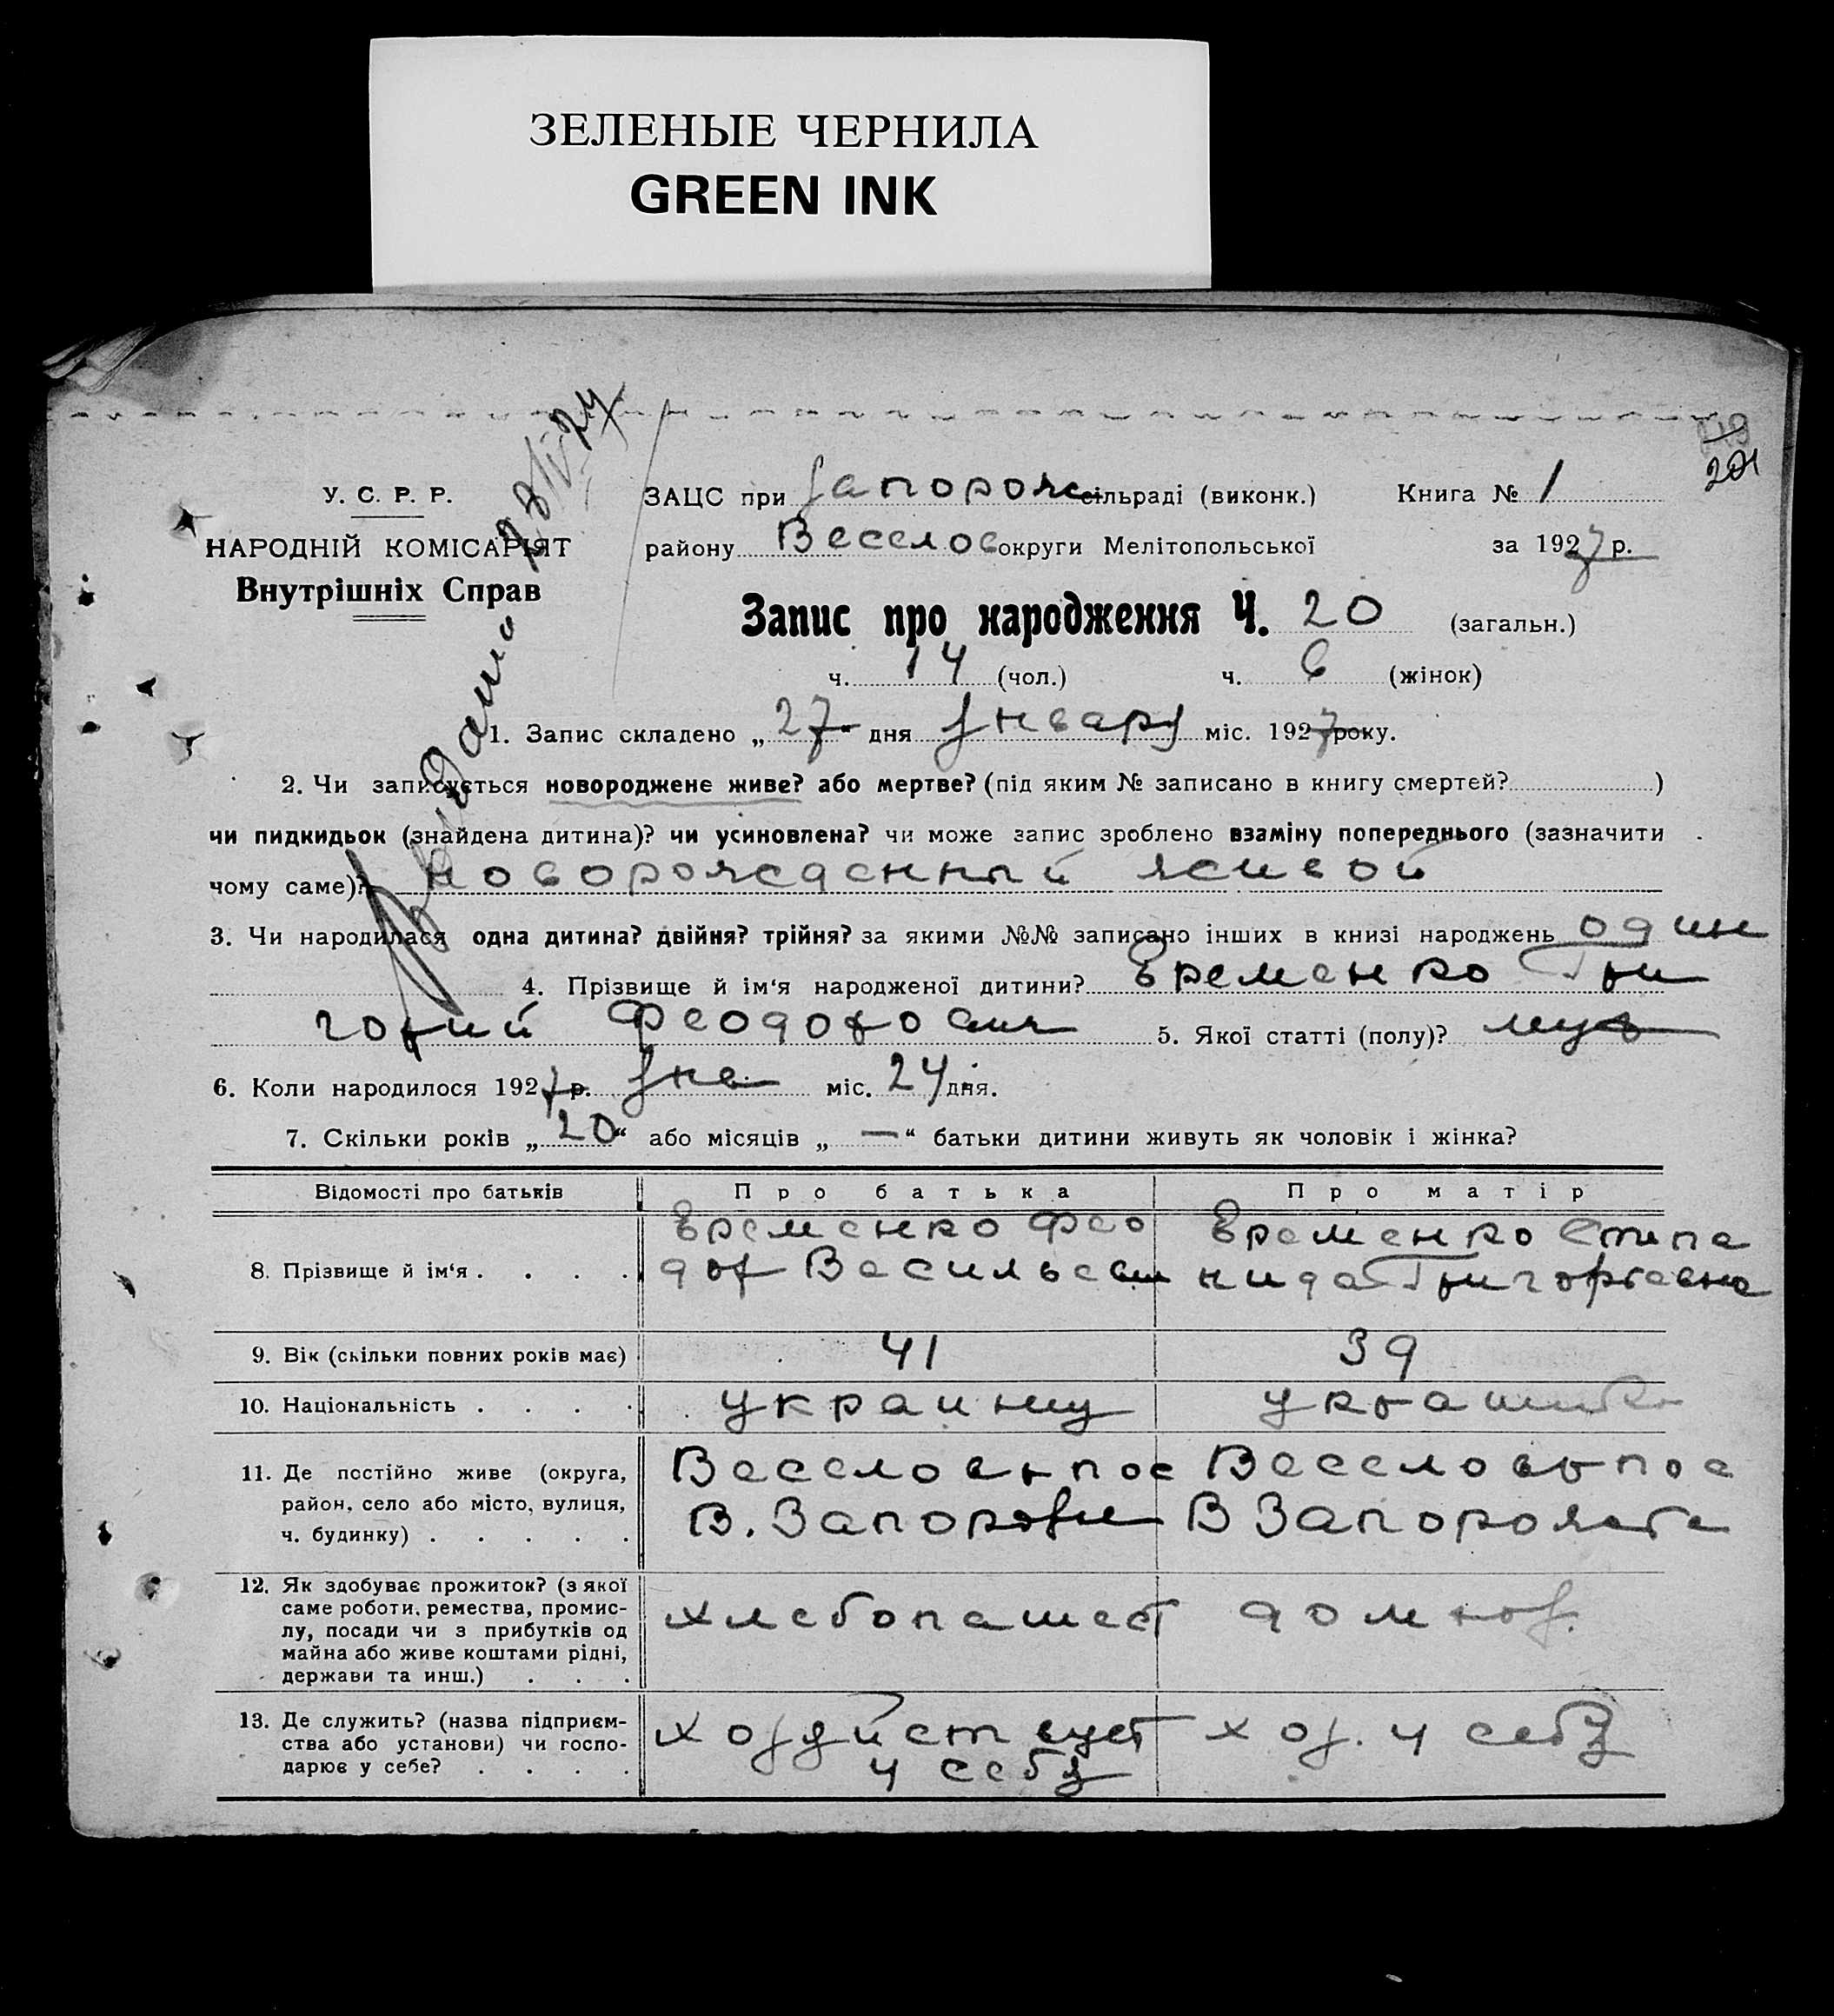 ЗЕЛЕНЫЕ ЧЕРНИЛА
GREEN INK
201
У. С. Р. Р.
НАРОДНІЙ КОМІСАРІЯТ
Внутрішніх Справ
ЗАЦС при Запорож сільраді (виконк.) Книга № 1
району Веселов округи Мелітопольської за 1927 р.
Запис про народження Ч. 20 (загальн.)
ч. 14 (чол.) ч. 6 (жінок)
1. Запис складено „ 27 “ дня Января міс. 1927 року.
2. Чи записується новороджене живе? або мертве? (під яким № записано в книгу смертей? )
чи пидкидьок (знайдена дитина)? чи усиновлена? чи може запис зроблено взаміну попереднього (зазначити
чому саме)? Новорожденный живой
3. Чи народилася одна дитина? двійня? трійня? за якими №№ записано інших в книзі народжень один
4. Прізвище й ім‘я народженої дитини? Еременко Гри
горий Феодоро 5. Якої статті (полу)? муж
6. Коли народилося 1927 р. Янв міс. 24 дня.
7. Скільки років „ 20 “ або місяців „ — “ батьки дитини живуть як чоловік і жінка?
Відомості про батьків Про батька Про матір
8. Прізвище й ім‘я . . . . Еременко Фео Еременко Степа
дор Васильев нида Григорьевна
9. Вік (скільки повних років має) 41 39
10. Національність . . . . украинц украинка
11. Де постійно живе (округа, район, село або місто, вулиця, ч. будинку) . . . . . Веселовър пос Веселовър пос
В. Запорожье В Запорожье
12. Як здобуває прожиток? (з якої саме роботи, ремества, промислу, посади чи з прибутків од майна або живе коштами рідні, держави та инш.) . . . хлебопашест домхоз.
13. Де служить? (назва підприємства або установи) чи господарює у себе? . . . . хозяйствует хоз. у себя
у себя